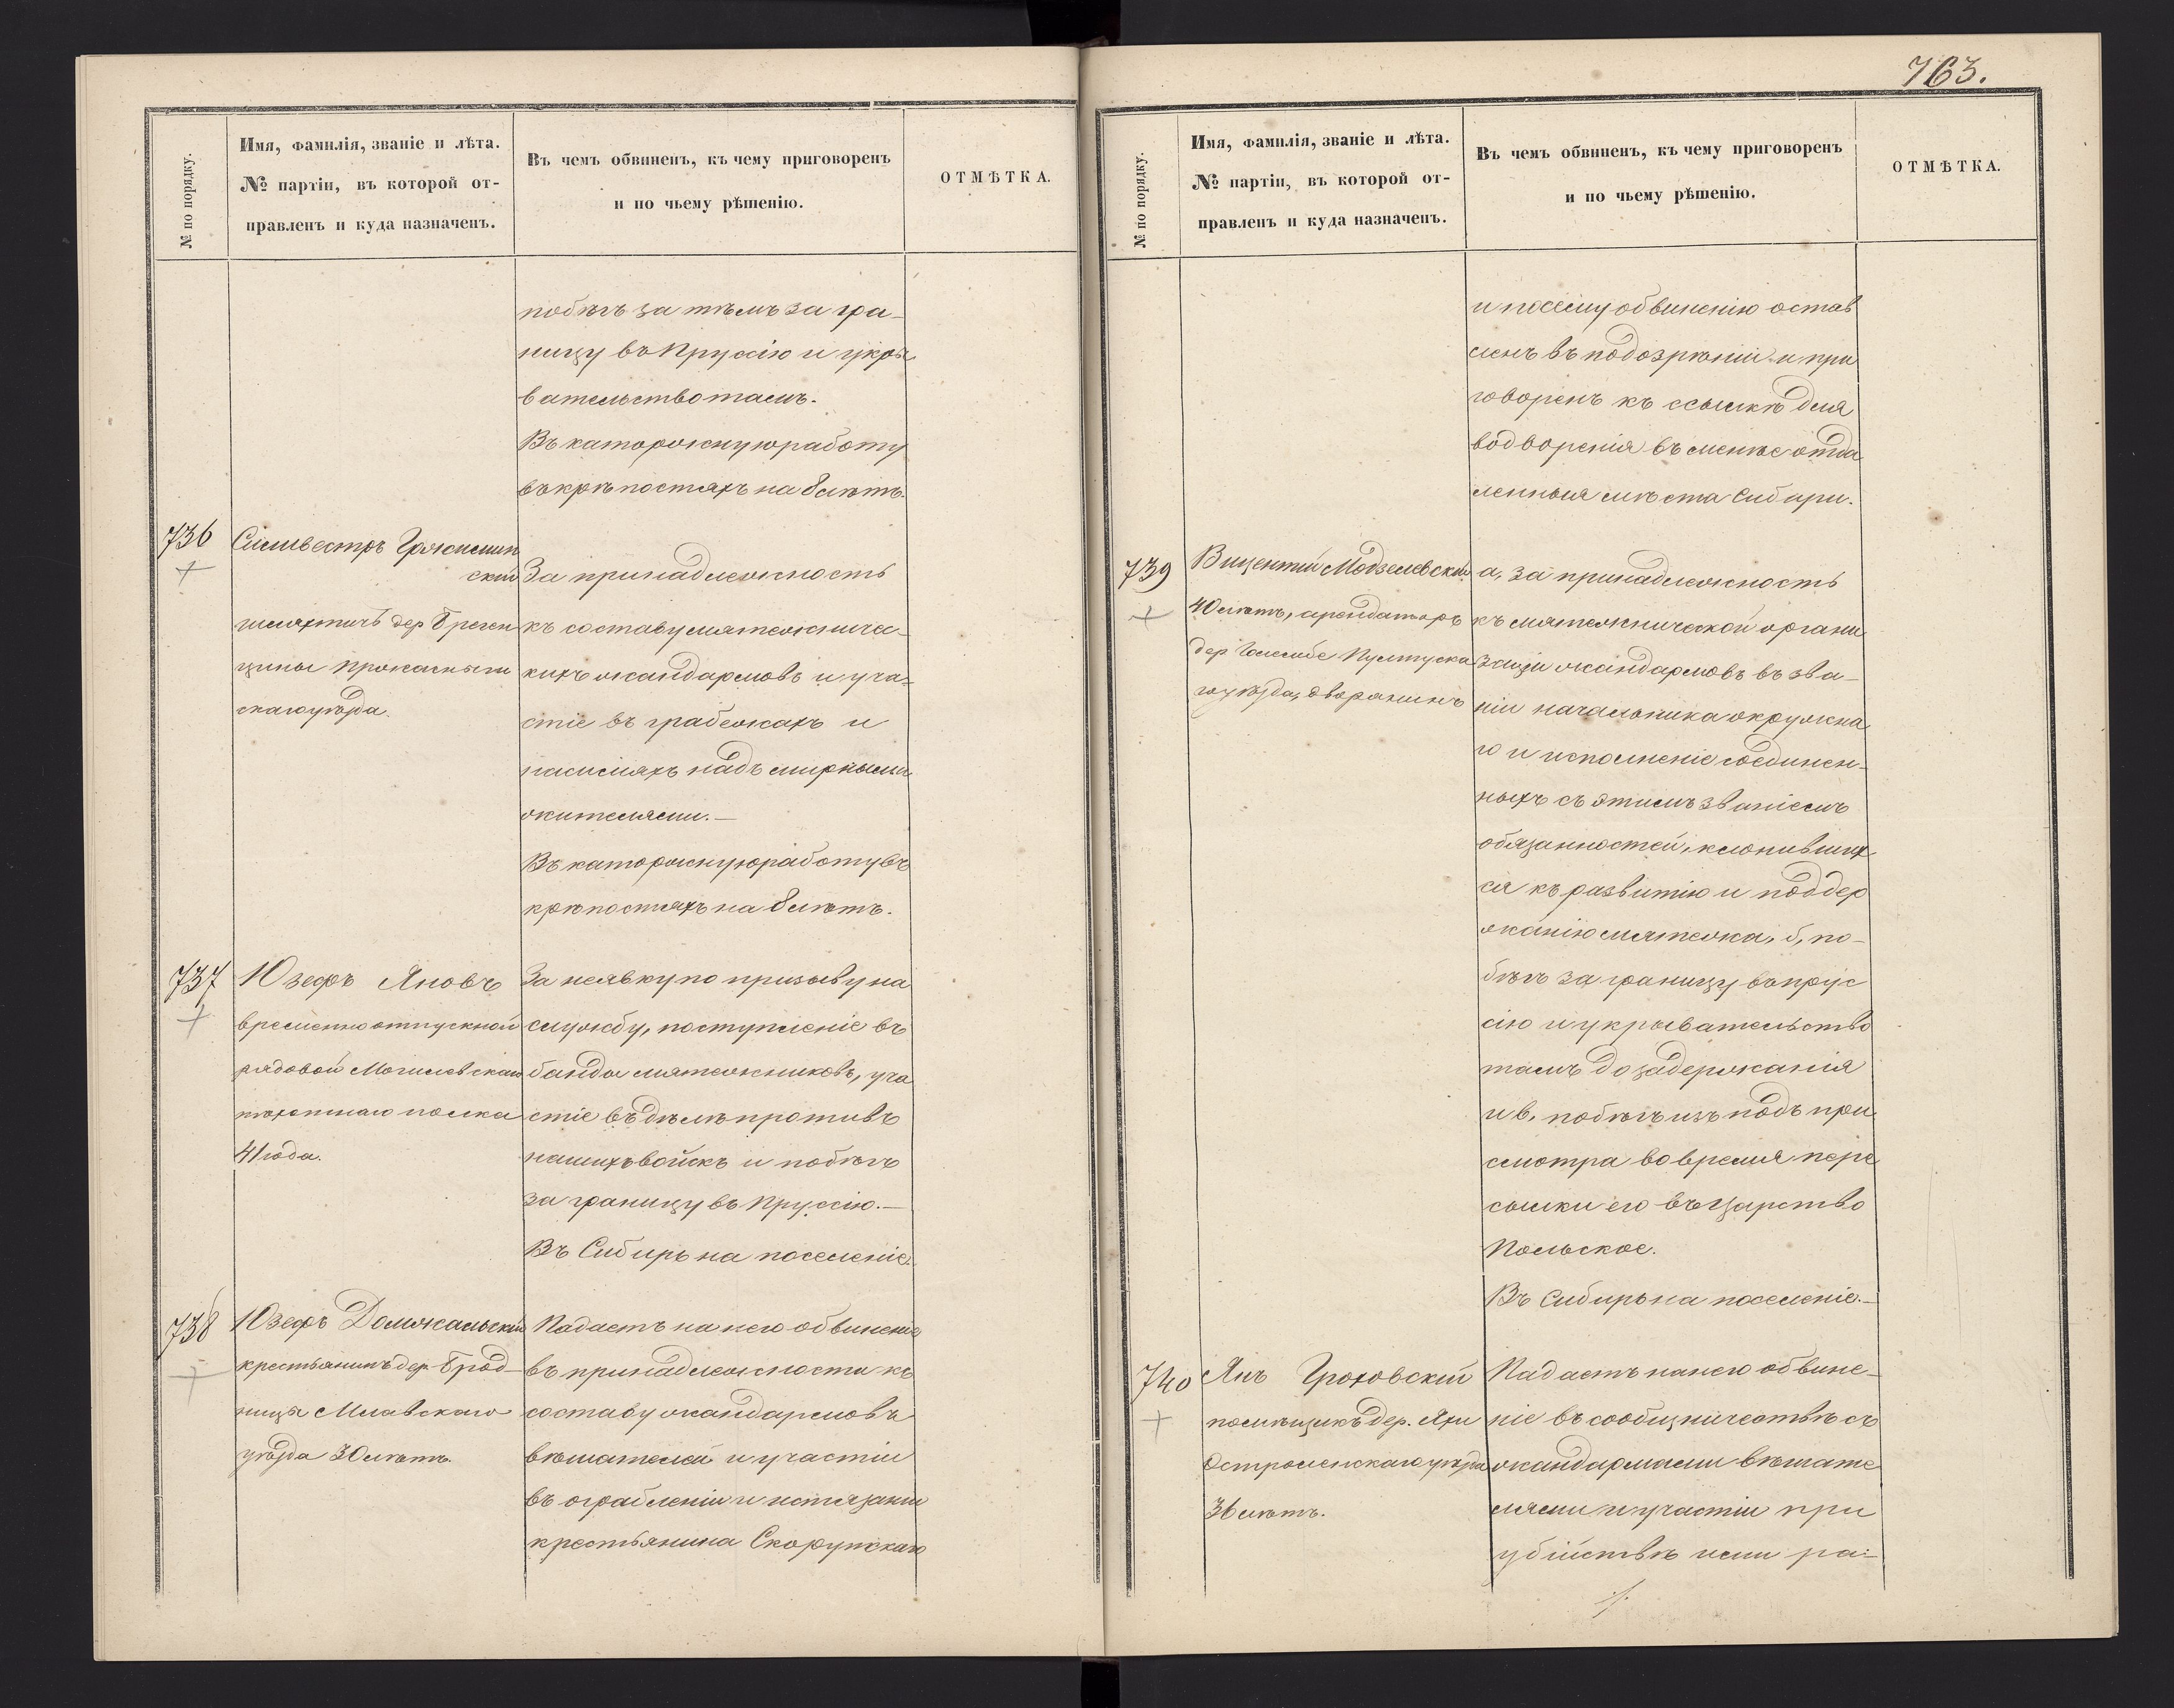 № по порядку.
Имя, фамилія, званіе и лѣта.
№ партіи, въ которой от-
правленъ и куда назначенъ.
Въ чемъ обвиненъ, къ чему приговоренъ
и по чьему рѣшенію.
ОТМѢТКА.
побѣгъ за тѣмъ за гра-
ницу въ Пруссію и укры
вательство тамъ.
Въ каторожную работу
въ крѣпостяхъ на 8 лѣтъ.
736
Сильвестръ
скій
шляхтичъ дер
скаго уѣзда.
За принадлежность
къ составу мятежничес-
кихъ жандармовъ и уча-
стіе въ грабежахъ и
насиліяхъ надъ мирными
жителями.—
Въ каторожную работу въ
крѣпостяхъ на 8 лѣтъ.
737
Юзефъ Яновъ
временно отпускной
рядовой Могилевскаго
пѣхотнаго полка
41 года.
За неявку по призыву на
службу, поступленіе въ
банды мятежниковъ, уча
стіе въ дѣлѣ противъ
нашихъ войскъ и побѣгъ
за границу въ Пруссію.—
Въ Сибирь на поселеніе.
738
Юзефъ Домжальскій
крестьянинъ дер. Брод-
ницы Млавскаго
уѣзда 30 лѣтъ.
Падаетъ на него обвиненіе
въ принадлежности къ
составу жандармовъ
вѣшателей и участіи
въ ограбленіи и истязаніи
крестьянина Скорупскаго
763.
№ по порядку.
Имя, фамилія, званіе и лѣта.
№ партіи, въ которой от-
правленъ и куда назначенъ.
Въ чемъ обвиненъ, къ чему приговоренъ
и по чьему рѣшенію.
ОТМѢТКА.
и по сему обвиненію остав
ленъ въ подозрѣніи и при
говоренъ къ ссылкѣ для
водворенія въ менѣе отда
ленныя мѣста Сибири.
739
Вицентій Модзелевскій
40 лѣтъ, арендаторъ
дер Пултуска
го уѣзда, дворянинъ
а, за принадлежность
къ мятежнической органи
заціи жандармовъ въ зва-
ніи начальника окружна
го и исполненіе соединен-
ныхъ съ этимъ званіемъ
обязанностей, клонивших
ся къ развитію и поддер
жанію мятежа, б, по-
бѣгъ за границу въ прус
сію и укрывательство
тамъ до задержанія
и в, побѣгъ изъ подъ при
смотра во время пере
сылки его въ Царство
Польское.
Въ Сибирь на поселеніе.—
740
Янъ Гроховскій
помѣщикъ дер. Яхи
Остроленскаго уѣзда
36 лѣтъ.
Падаетъ на него обвине-
ніе въ сообщничествѣ съ
жандармами вѣшате
лями и участіи при
убійствѣ ими ра-